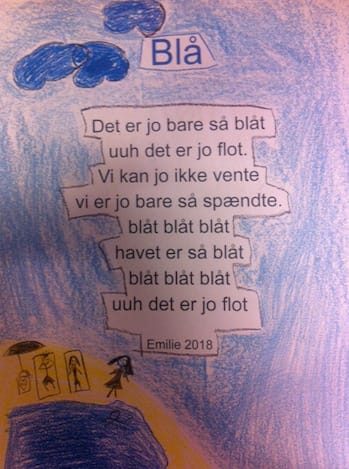 Blå
Det er jo bare så blåt
uuh det er jo flot.
Vi kan jo ikke vente
vi er jo bare så spændte.
blåt blåt blåt
havet er så blåt
blåt blåt blåt
uuh det er jo flot
Emilie 2018